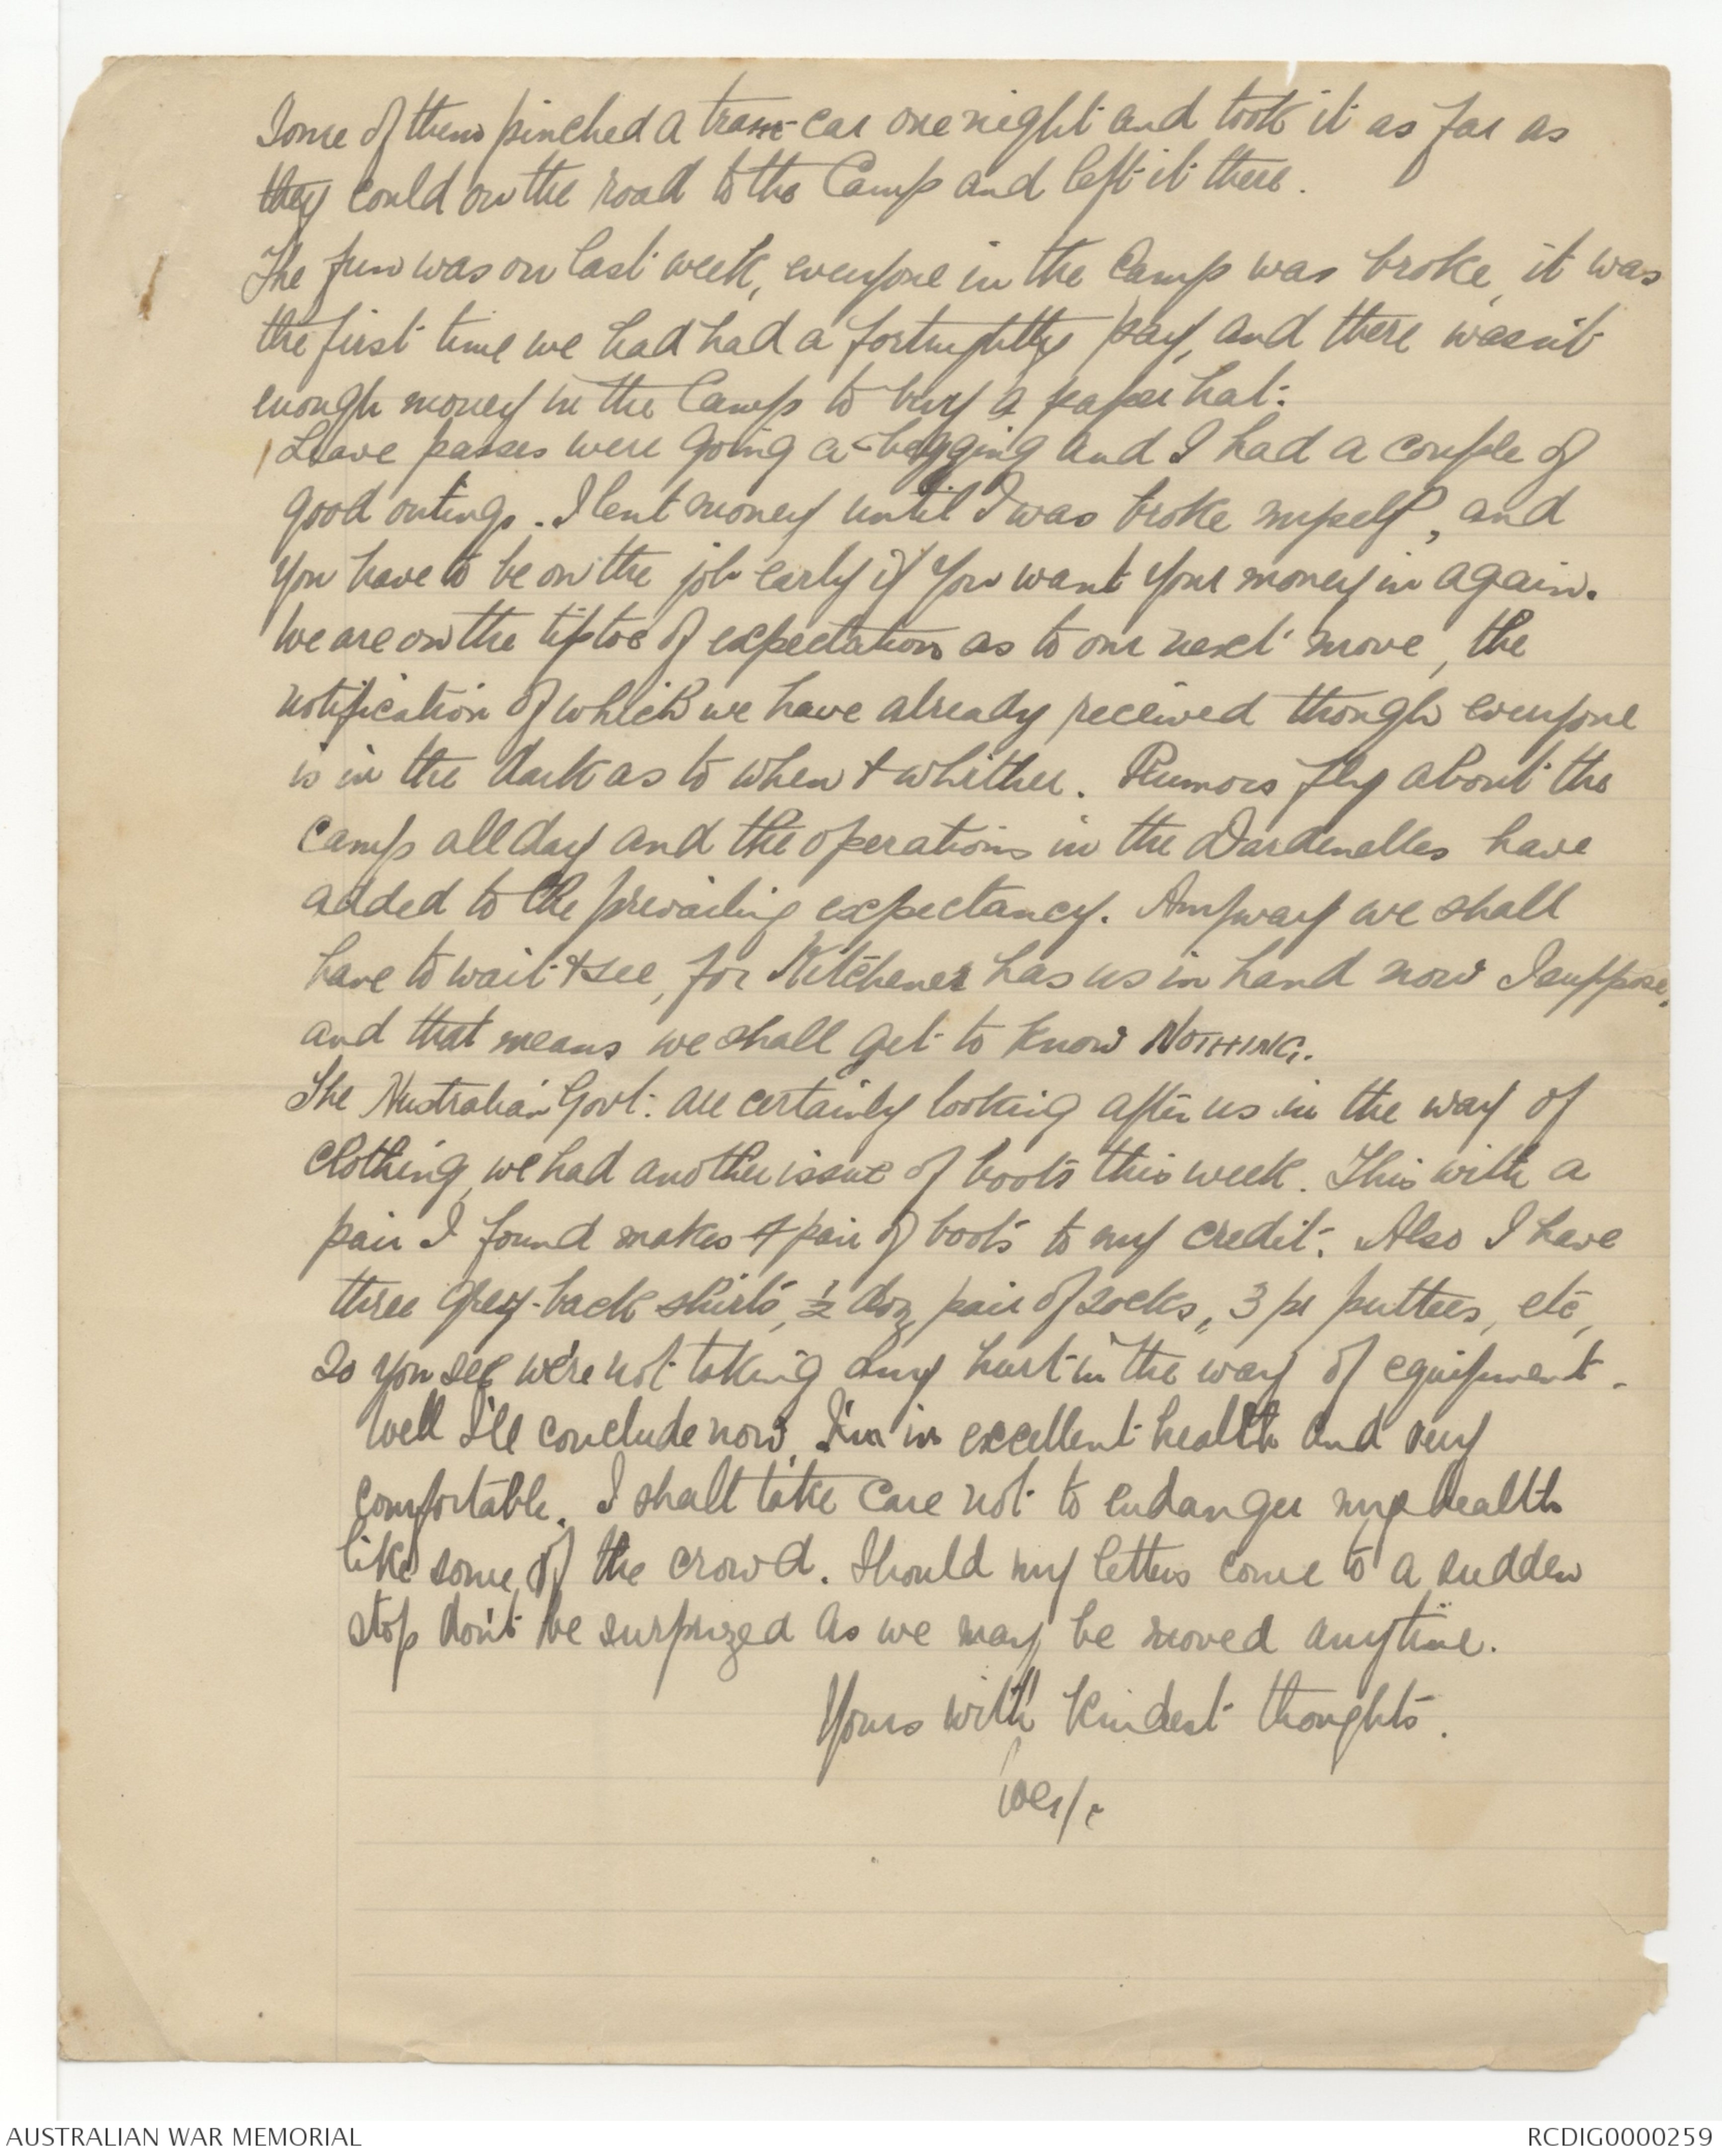 Some of them pinched a tram-car one night and took it as far as
they could on the road to the Camp and left it there.
The fun was on last week, everyone in the Camp was broke, it was
the first time we had had a fortnightly pay, and there wasn't
enough money in the Camp to buy a paper hat.
Leave passes were going a-begging and I had a couple of
good outings. I lent money until I was broke myself, and
you have to be on the job early if you want your money in again.
We are on the tiptoe of expectation as to our next move, the
notification of which we have already received though everyone
is in the dark as to when & whither. Rumors fly about the
Camp all day and the operations in the Dardenelles have
added to the prevailing expectancy. Anyway we shall
have to wait & see, for Kitchener has us in hand now I suppose,
and that means we shall get to know NOTHING.
The Australian Govt. are certainly looking after us in the way of
clothing, we had another issue of boots this week. This with a
pair I found makes 4 pair of boots to my credit. Also I have
three grey-back shirts, ½ doz pair of socks, 3 pr puttees, etc,
So you see we're not taking any hurt in the way of equipment.
Well I'll conclude now, I'm in excellent health and very
comfortable. I shall take care not to endanger my health
like some of the crowd. Should my letters come to a sudden
stop don't be surprized as we may be moved anytime.
Yours with kindest thoughts.
AUSTRALIAN WAR MEMORIAL
RCDIG0000259